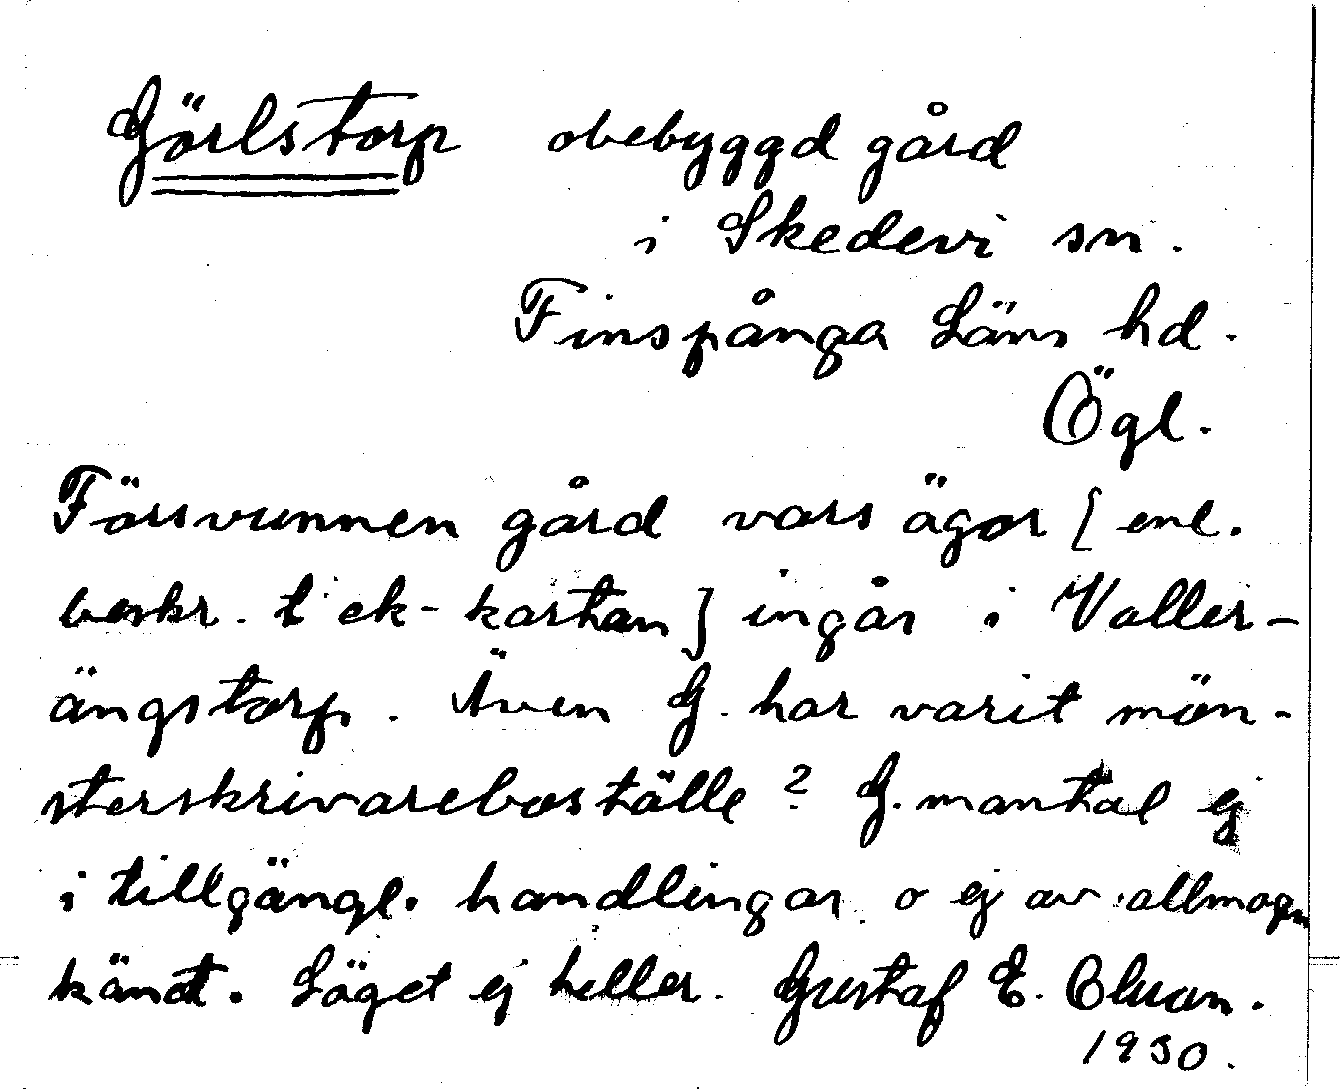 Görlstorp obebyggd gård
i Skedevi sn.
Finspånga Läns hd.
Ögl.
Försvunnen gård vars ägor [enl.
beskr. t ek-kartan] ingår i Valler-
ängstorp. Även G. har varit mön-
sterskrivareboställe? G. mantal ej
i tillgängl. handlingar o ej av allmogen
känd. Läget ej heller. Gustaf E.
1930.